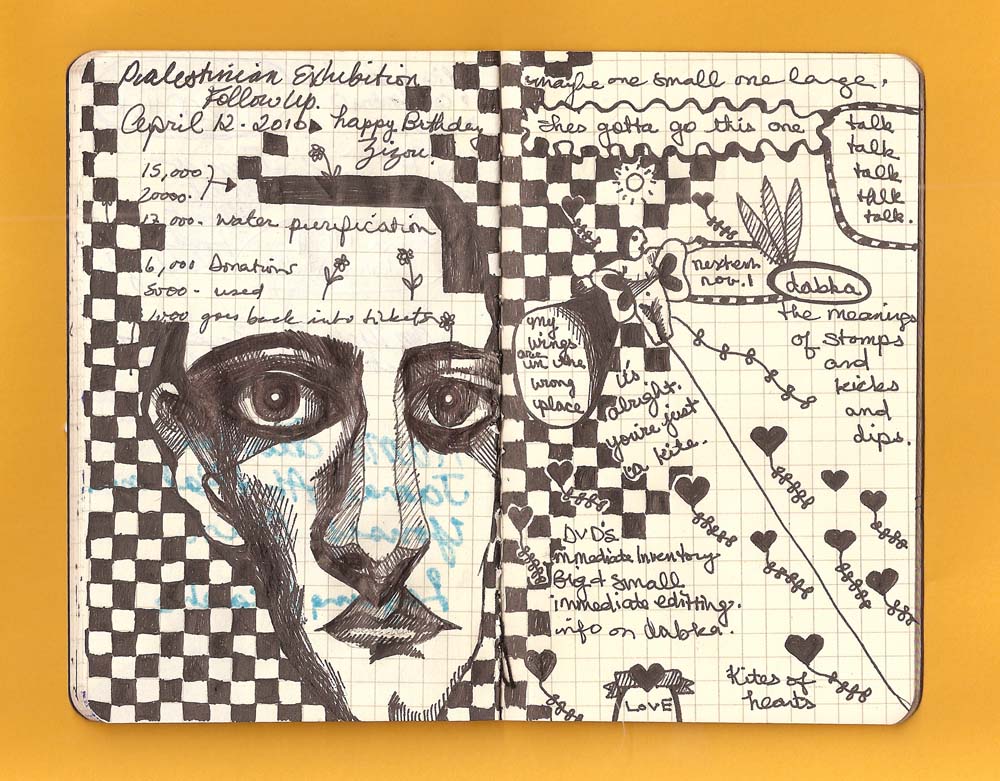 Palestinian Exhibition
Follow Up.
April 12 - 2010 happy Birthday
Zizou.
15,000
20000.
12,000. water purification
6,000 Donations
5000 - used
1000 goes back into tickets
maybe one small one large.
shes gotta go this one
talk
talk
talk
talk
talk.
nov. 1
dabka
the meanings
of stomps
and
kicks
and
dips.
my
wings
are in the
wrong
place
it's
alright.
you're just
a kite..
DVD's
immediate Inventory
Big & small
immediate editting.
info on dabka.
LOVE
Kites of
hearts